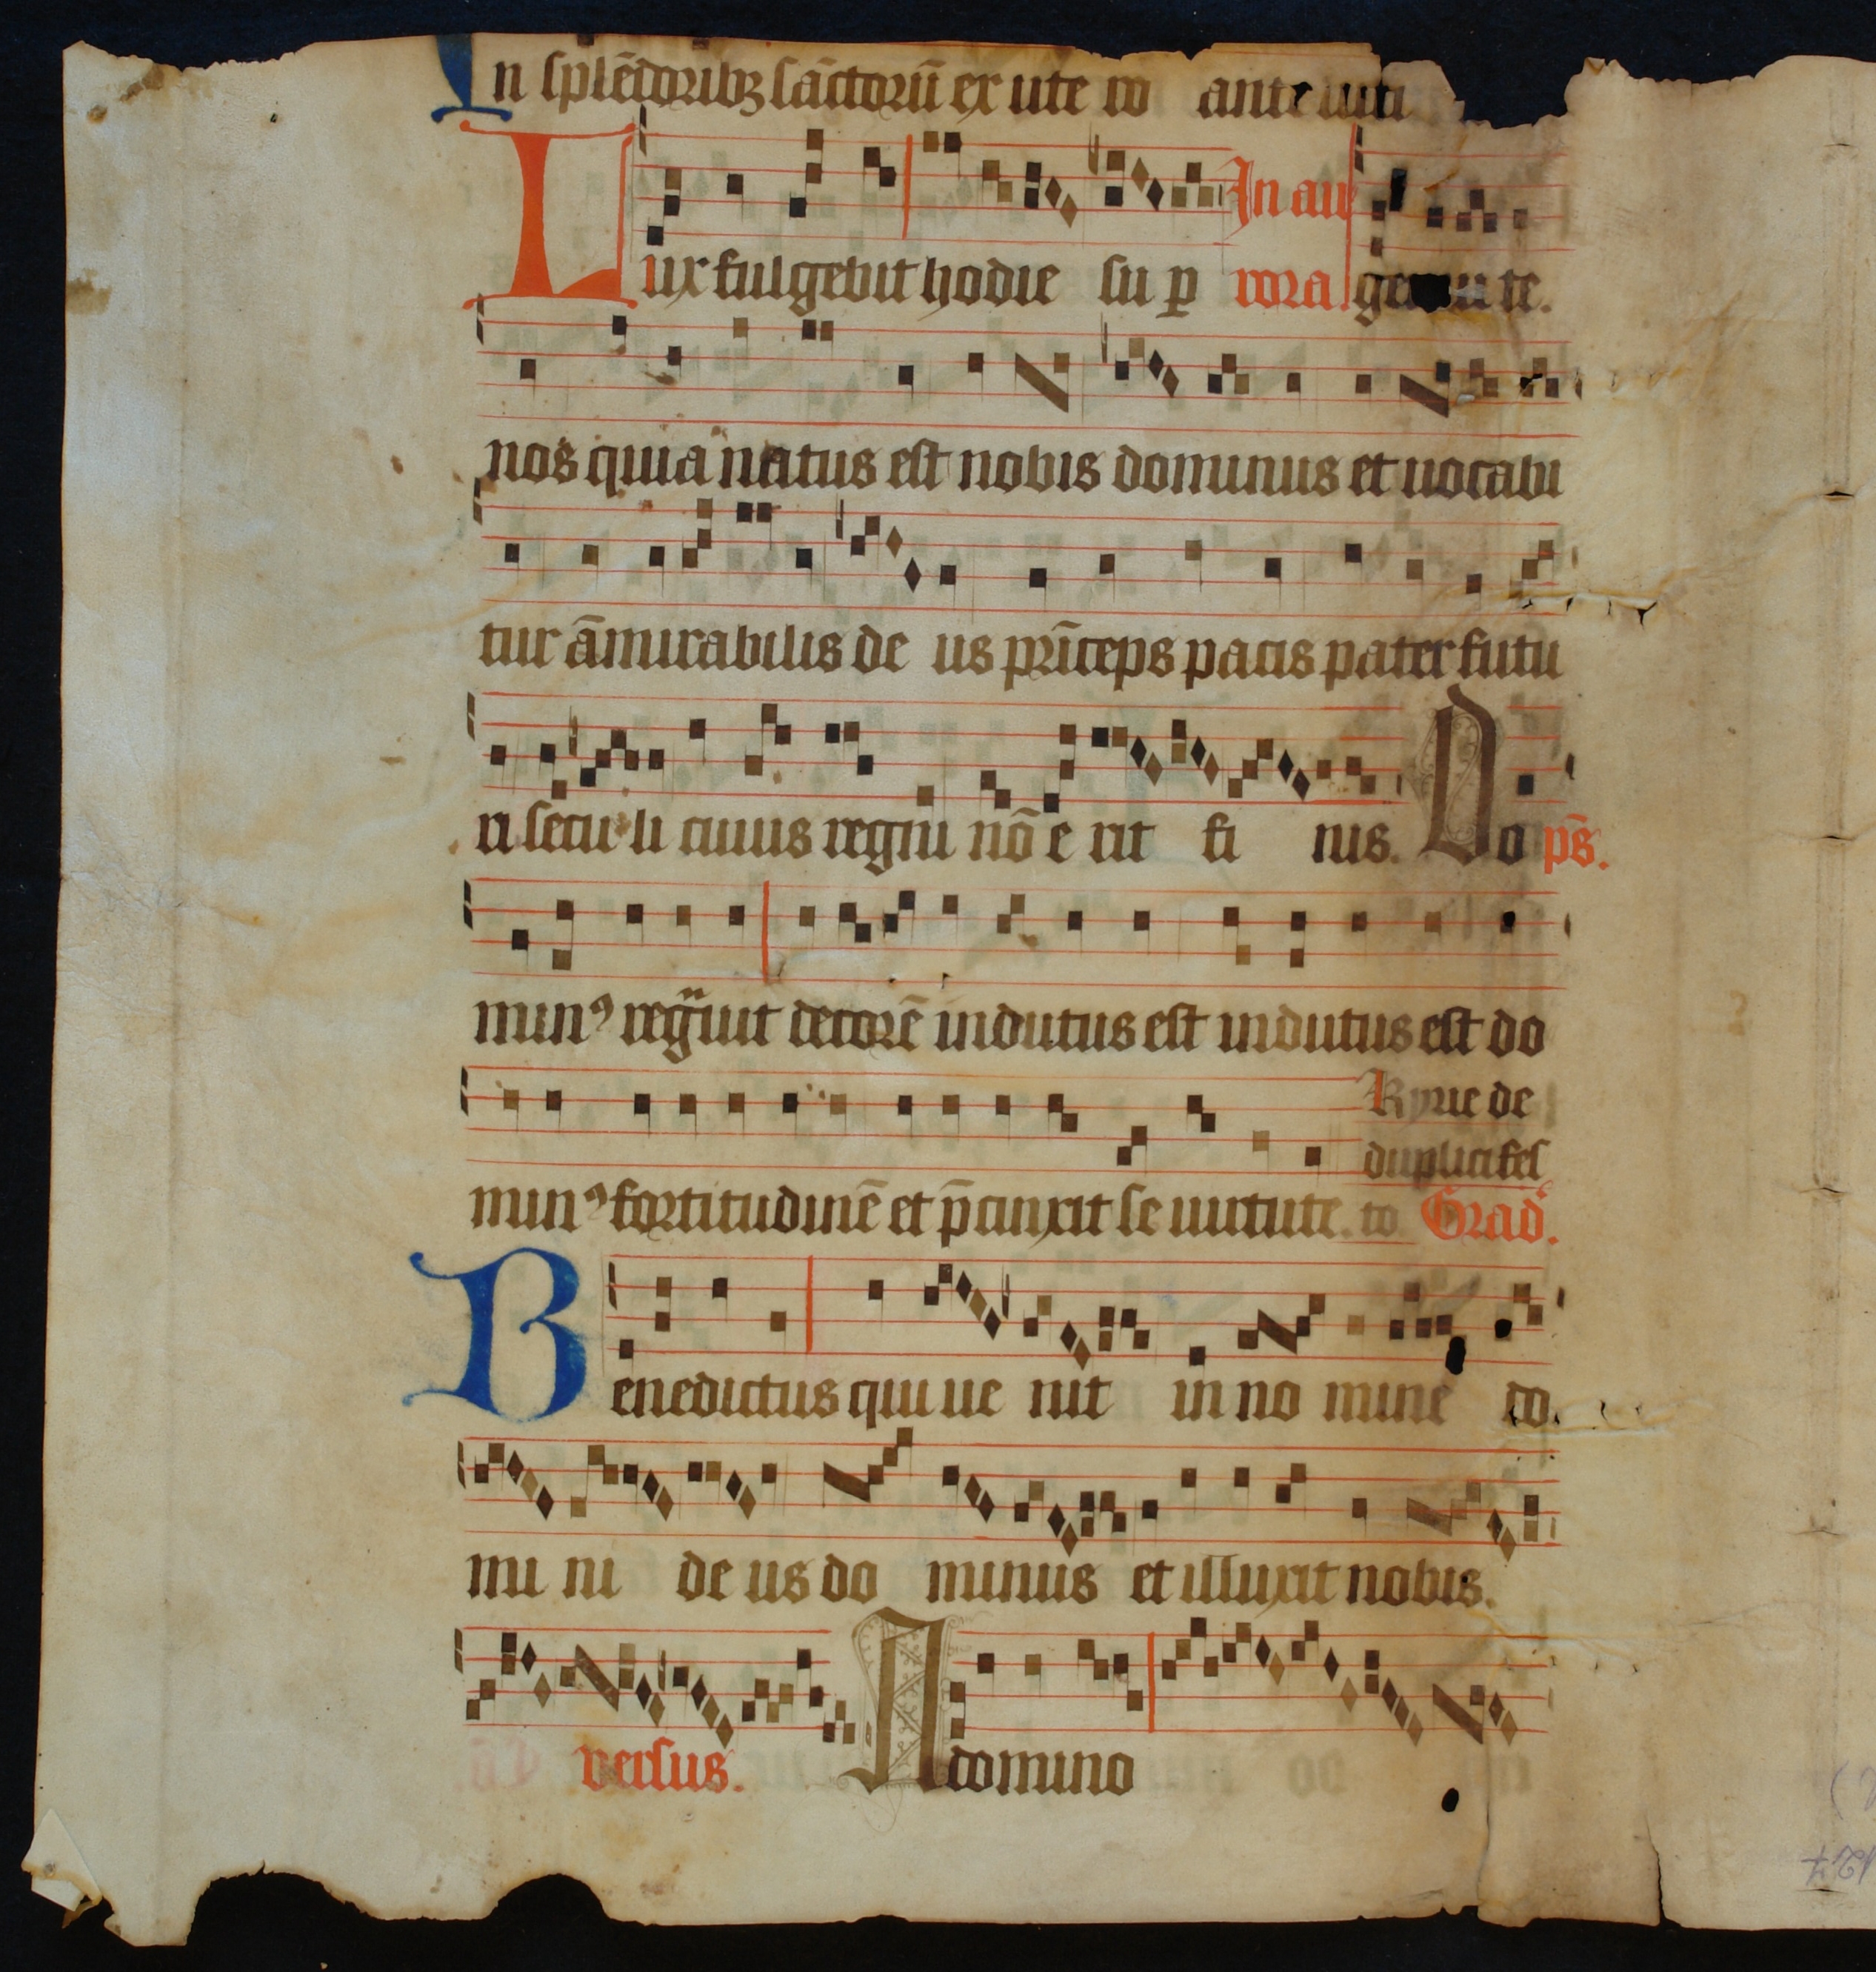 In splēdoribꝫ sāctorū ex ute ro ante luci
In au
Lux fulgebit hodie su ꝑ rora ge te.
nos quia natus est nobis dominus et uocabi
tur āmirabilis de us prīceps pacis pater futu
ri secu li cuius regni nō e rit fi nis. Do ps̄.
minꝰ regͣuit decorē indutus est indutus est do
Kyrie de
duplici fes
minꝰ fortitudinē et p̄cinxit se uirtute. to Grad̄.
Benedictus qui ue nit in no mine do
mi ni de us do minus et illuxit nobis.
versus. A domino
127